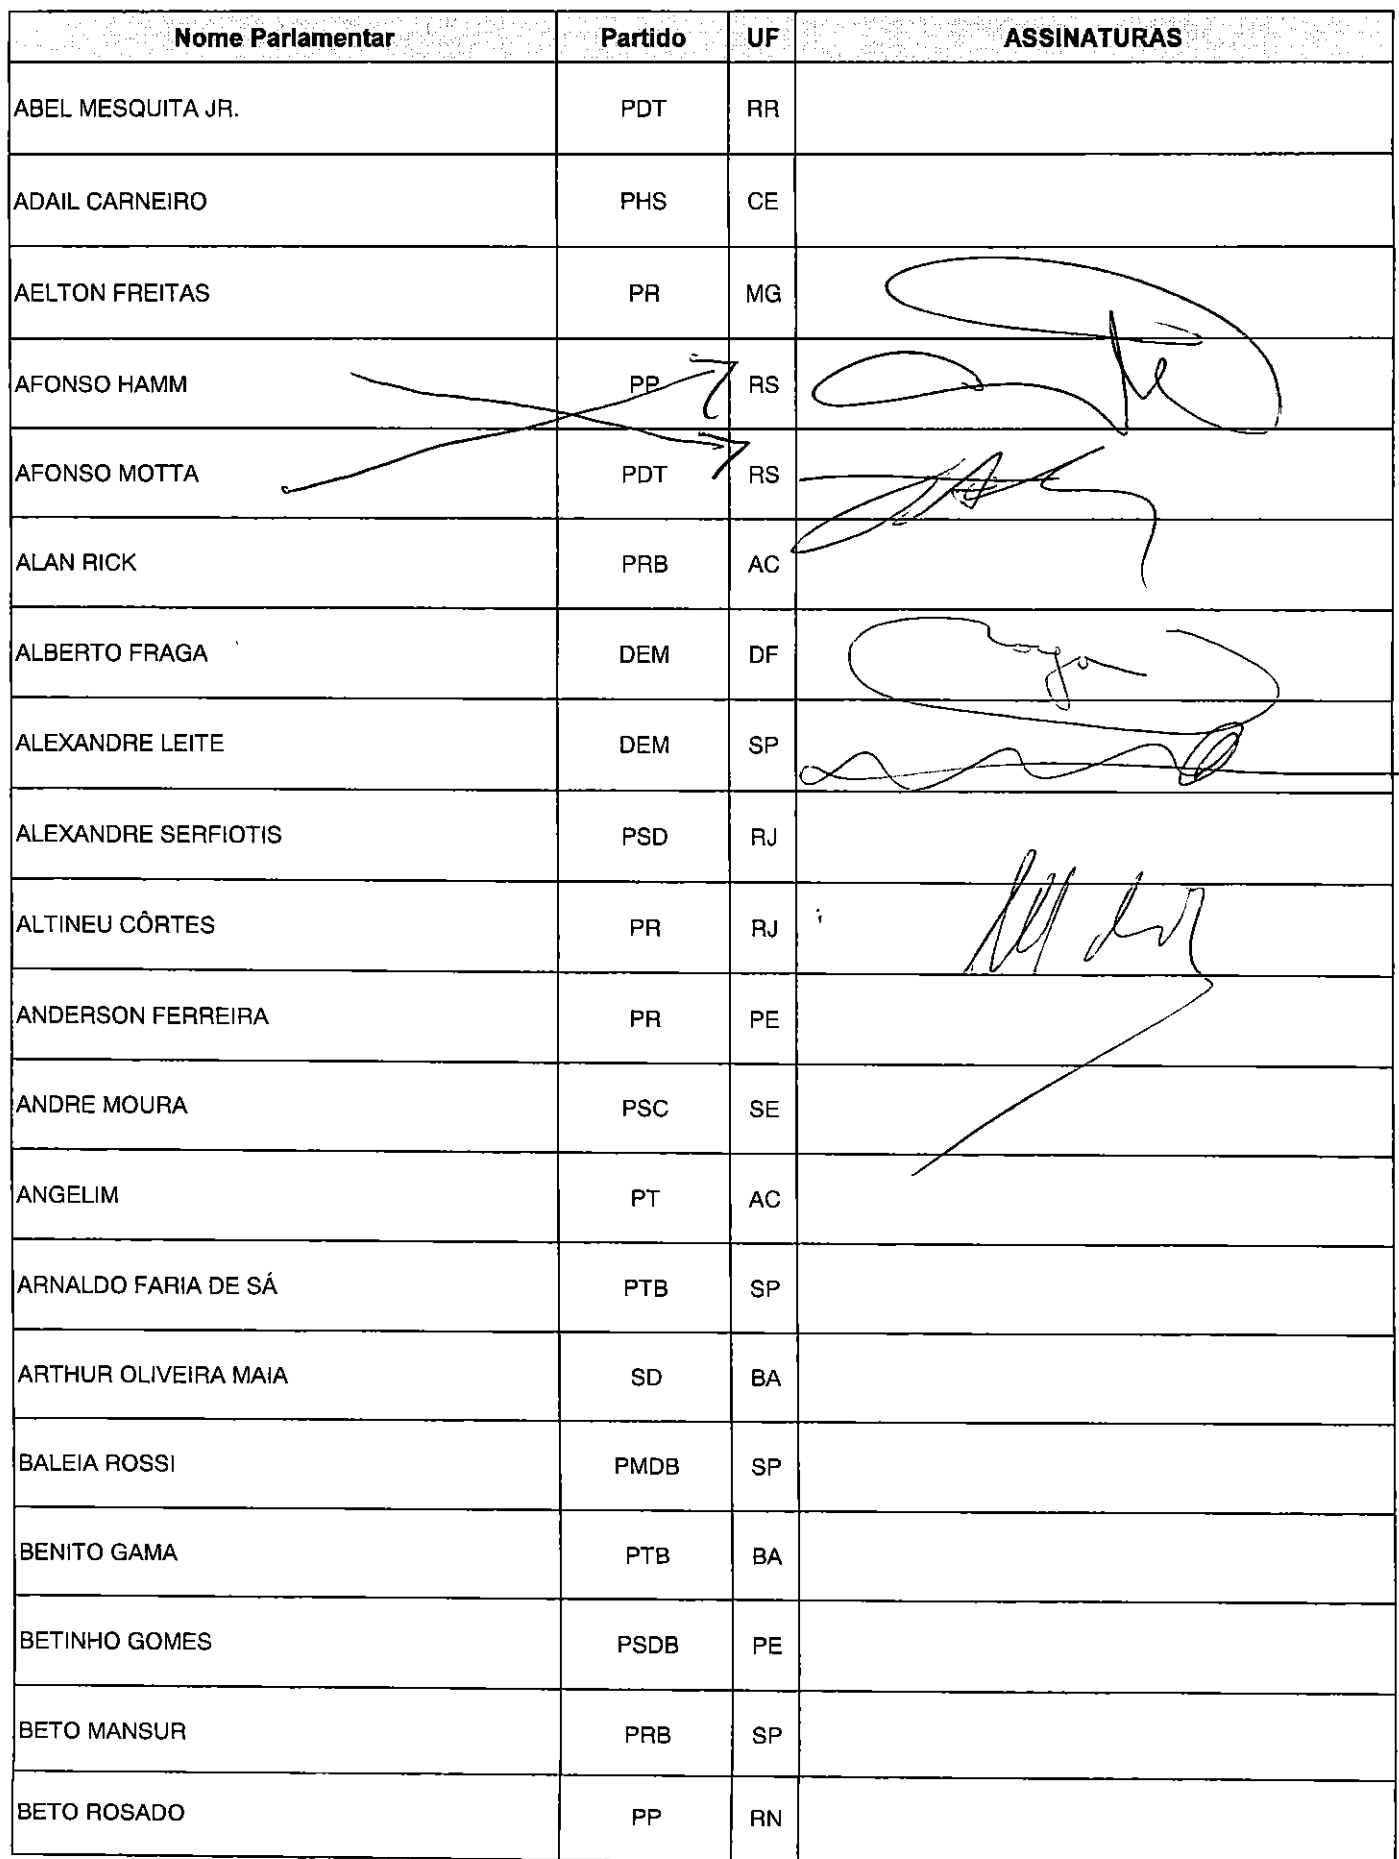 Nome Parlamentar Partido UF ASSINATURAS
ABEL MESQUITA JR. PDT RR
ADAIL CARNEIRO PHS CE
AELTON FREITAS PR MG
AFONSO HAMM PP RS
AFONSO MOTTA PDT RS
ALAN RICK PRB AC
ALBERTO FRAGA DEM DF
ALEXANDRE LEITE DEM SP
ALEXANDRE SERFIOTIS PSD RJ
ALTINEU CÔRTES PR RJ
ANDERSON FERREIRA PR PE
ANDRE MOURA PSC SE
ANGELIM PT AC
ARNALDO FARIA DE SÁ PTB SP
ARTHUR OLIVEIRA MAIA SD BA
BALEIA ROSSI PMDB SP
BENITO GAMA PTB BA
BETINHO GOMES PSDB PE
BETO MANSUR PRB SP
BETO ROSADO PP RN